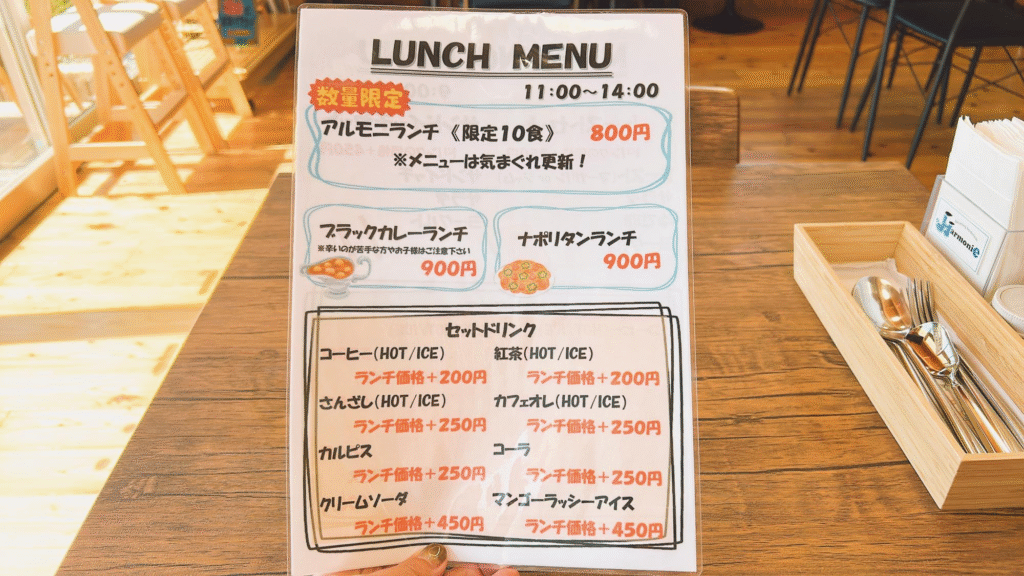 LUNCH MENU
数量限定
11:00～14:00
アルモニランチ《限定10食》 800円
※メニューは気まぐれ更新！
ブラックカレーランチ
※辛いのが苦手な方やお子様はご注意下さい
900円
ナポリタンランチ
900円
セットドリンク
コーヒー(HOT/ICE) 紅茶(HOT/ICE)
ランチ価格＋200円 ランチ価格＋200円
さんざし(HOT/ICE) カフェオレ(HOT/ICE)
ランチ価格＋250円 ランチ価格＋250円
カルピス コーラ
ランチ価格＋250円 ランチ価格＋250円
クリームソーダ マンゴーラッシーアイス
ランチ価格＋450円 ランチ価格＋450円
Harmonie